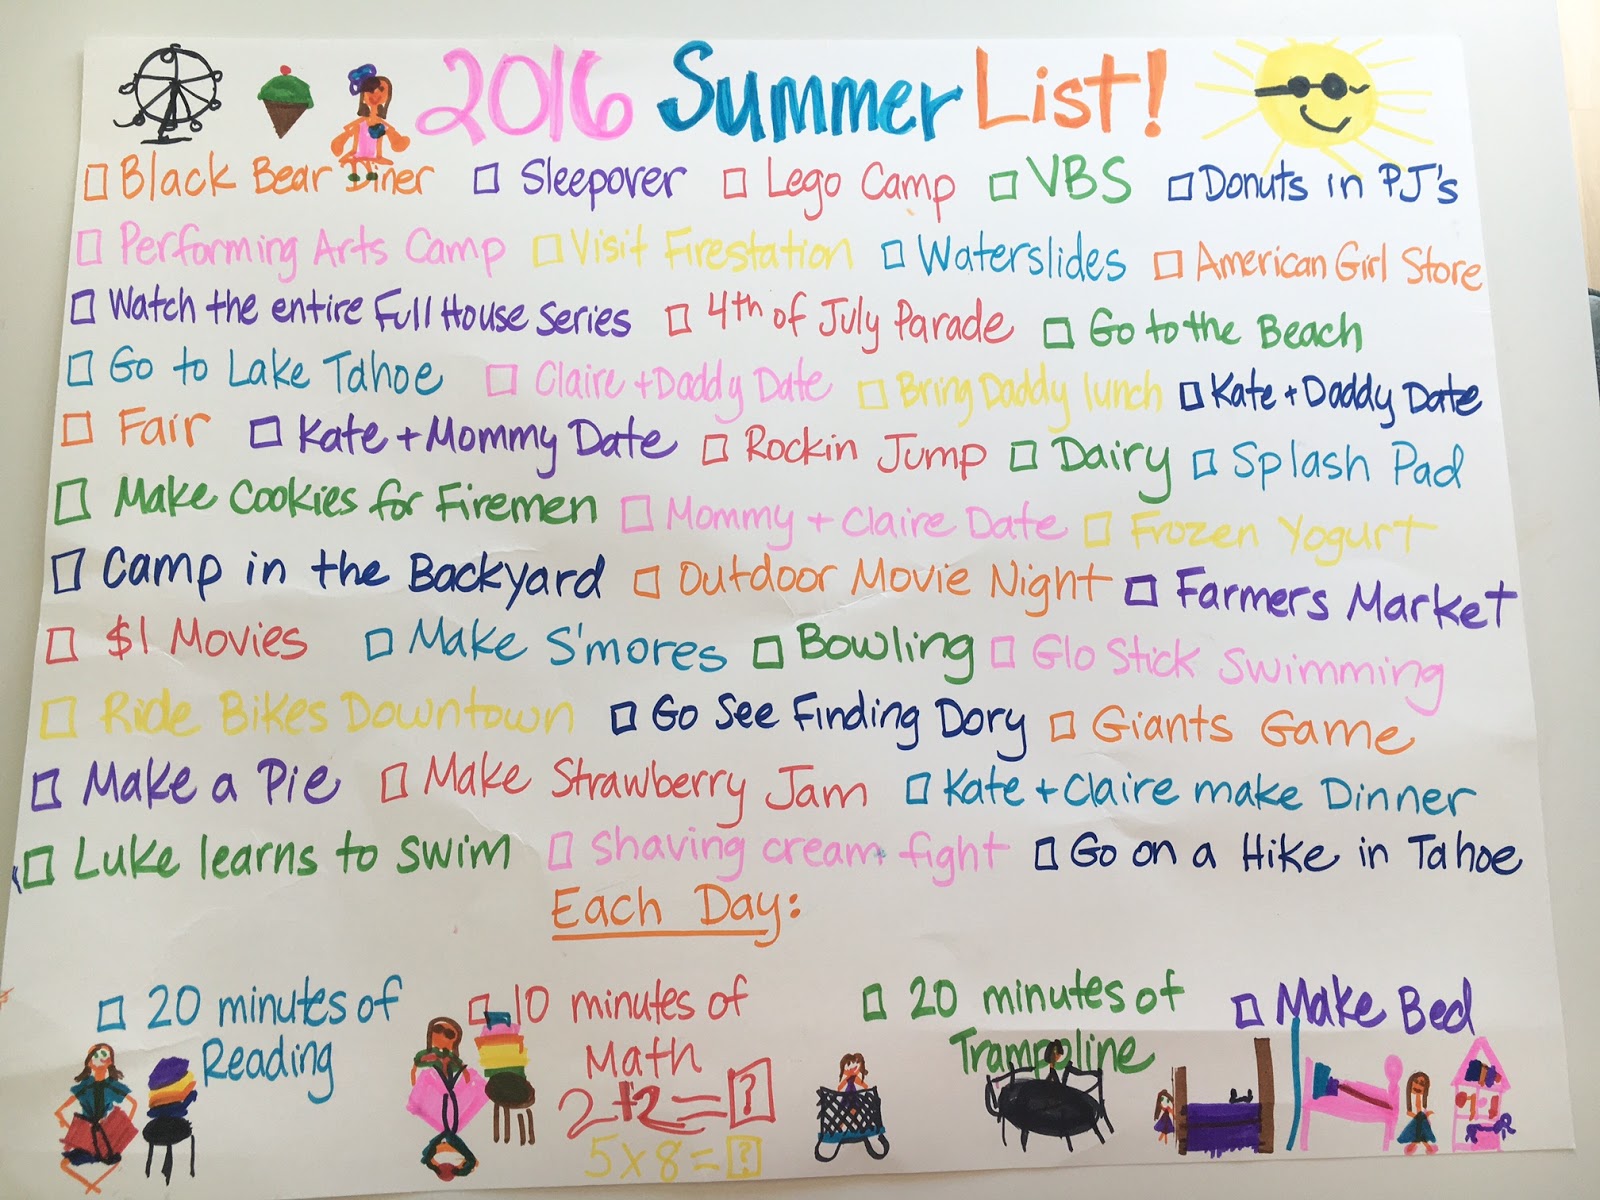 2016 Summer List!
Black Bear Diner Sleepover Lego Camp VBS Donuts in PJ's
Performing Arts Camp Visit Firestation Waterslides American Girl Store
Watch the entire Full House Series 4th of July Parade Go to the Beach
Go to Lake Tahoe Claire + Daddy Date Bring Daddy lunch Kate + Daddy Date
Fair Kate + Mommy Date Rockin Jump Dairy Splash Pad
Make Cookies for Firemen Mommy + Claire Date Frozen Yogurt
Camp in the Backyard Outdoor Movie Night Farmers Market
$1 Movies Make S'mores Bowling Glo Stick Swimming
Ride Bikes Downtown Go See Finding Dory Giants Game
Make a Pie Make Strawberry Jam Kate + Claire make Dinner
Luke learns to swim Shaving cream fight Go on a Hike in Tahoe
Each Day:
20 minutes of
Reading
10 minutes of
Math
2+2=?
5x8=?
20 minutes of
Trampoline
Make Bed